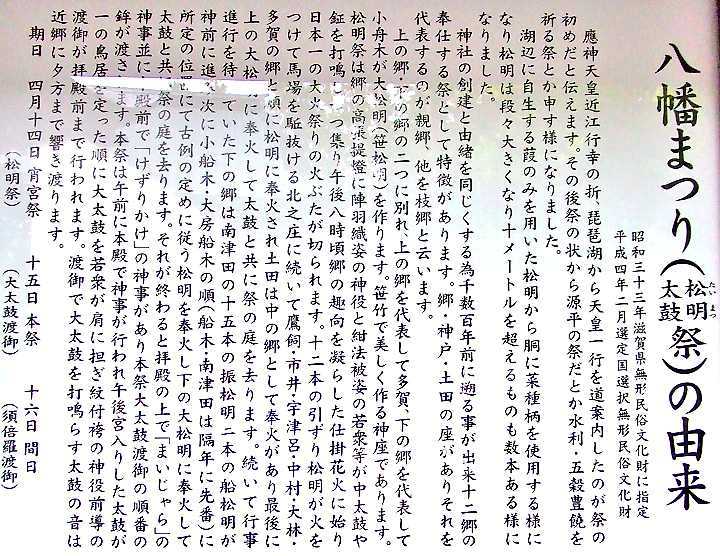 八幡まつり(松明太鼓祭)の由来
たいまつ
昭和三十三年滋賀県無形民俗文化財に指定
平成四年二月選定国選択無形民俗文化財
應神天皇近江行幸の折、琵琶湖から天皇一行を道案内したのが祭の
初めだと伝えます。その後祭の状から源平の祭だとか水利・五穀豊饒を
祈る祭とか申す様になりました。
湖辺に自生する葭のみを用いた松明から胴に菜種柄を使用する様に
なり松明は段々大きくなり十メートルを超えるものも数本ある様に
なりました。
神社の創建と由緒を同じくする為千数百年前に遡る事が出来十二郷の
奉仕する祭として特徴があります。郷・神戸・土田の座がありそれを
代表するのが親郷、他を枝郷と云います。
上の郷・下の郷の二つに別れ、上の郷を代表して多賀、下の郷を代表して
小舟木が大松明(笹松明)を作ります。笹竹で美しく作る神座であります。
松明祭は郷の高張提燈に陣羽織姿の神役と紺法被姿の若衆等が中太鼓や
鉦を打鳴 つつ集り午後八時頃郷の趣向を凝らした仕掛花火に始り
日本一の大火祭りの火ぶたが切られます。十二本の引ずり松明が火を
つけて馬場を駈抜ける北之庄に続いて鷹飼・市井・宇津呂・中村・大林・
多賀の郷と順に松明に奉火され土田は中の郷として奉火があり最後に
上の大松 に奉火して太鼓と共に祭の庭を去ります。続いて行事
進行を待 ていた下の郷は南津田の十五本の振松明二本の船松明が
神前に進 次に小船木・大房船木の順(船木・南津田は隔年に先番)に
所定の位 にて古例の定めに従う松明を奉火し下の大松明に奉火して
太鼓と共 祭の庭を去ります。それが終わると拝殿の上で「まいじゃら」の
神事並に 殿前で「けずりかけ」の神事があり本祭大太鼓渡御の順番の
鉾が渡さ ます。本祭は午前に本殿で神事が行われ午後宮入りした太鼓が
一の鳥居を定った順に大太鼓を若衆が肩に担ぎ紋付袴の神役前導の
渡御が拝殿前まで行われます。渡御で大太鼓を打鳴らす太鼓の音は
近郷に夕方まで響き渡ります。
期日 四月十四日 宵宮祭 十五日 本祭 十六日 間日
(松明祭) (大太鼓渡御) (須倍羅渡御)